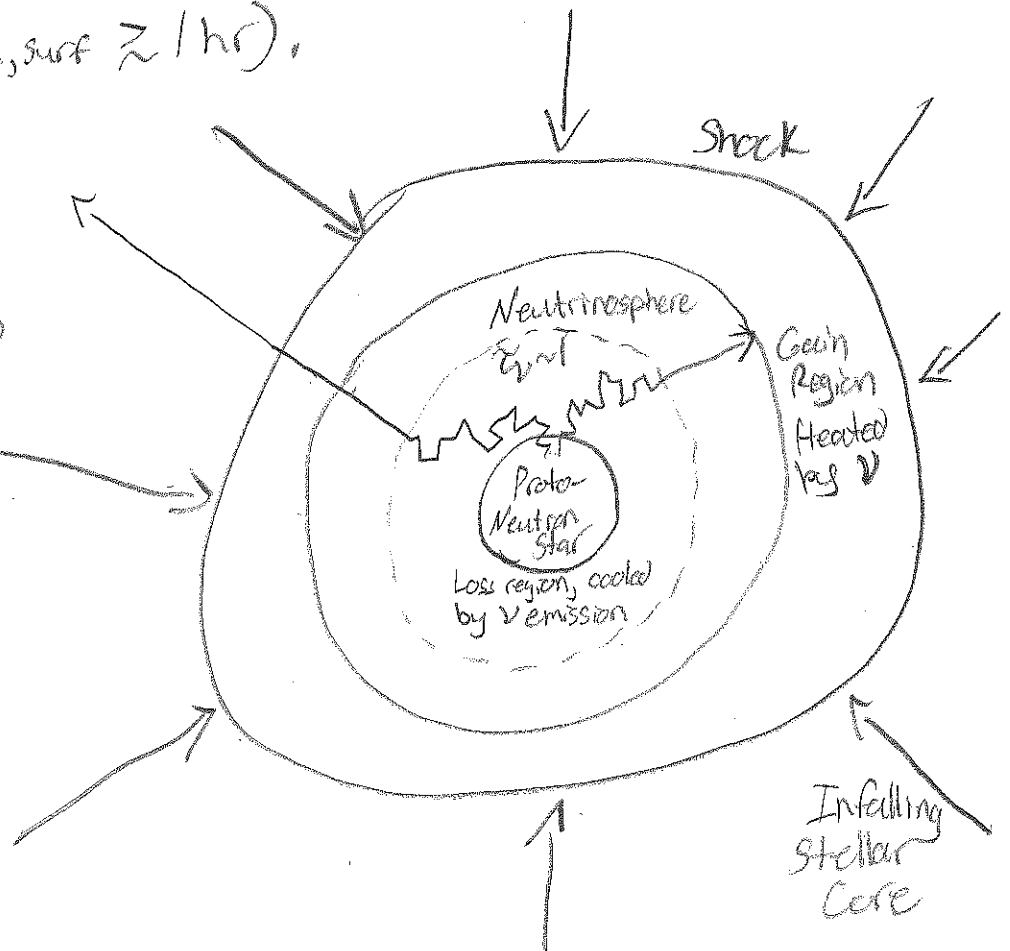 ,surf ≳ 1hr).
Shock
Neutrinosphere
Gain
Region
Heated
by ν
Proto-
Neutron
Star
Loss region, cooled
by ν emission
Infalling
Stellar
Core